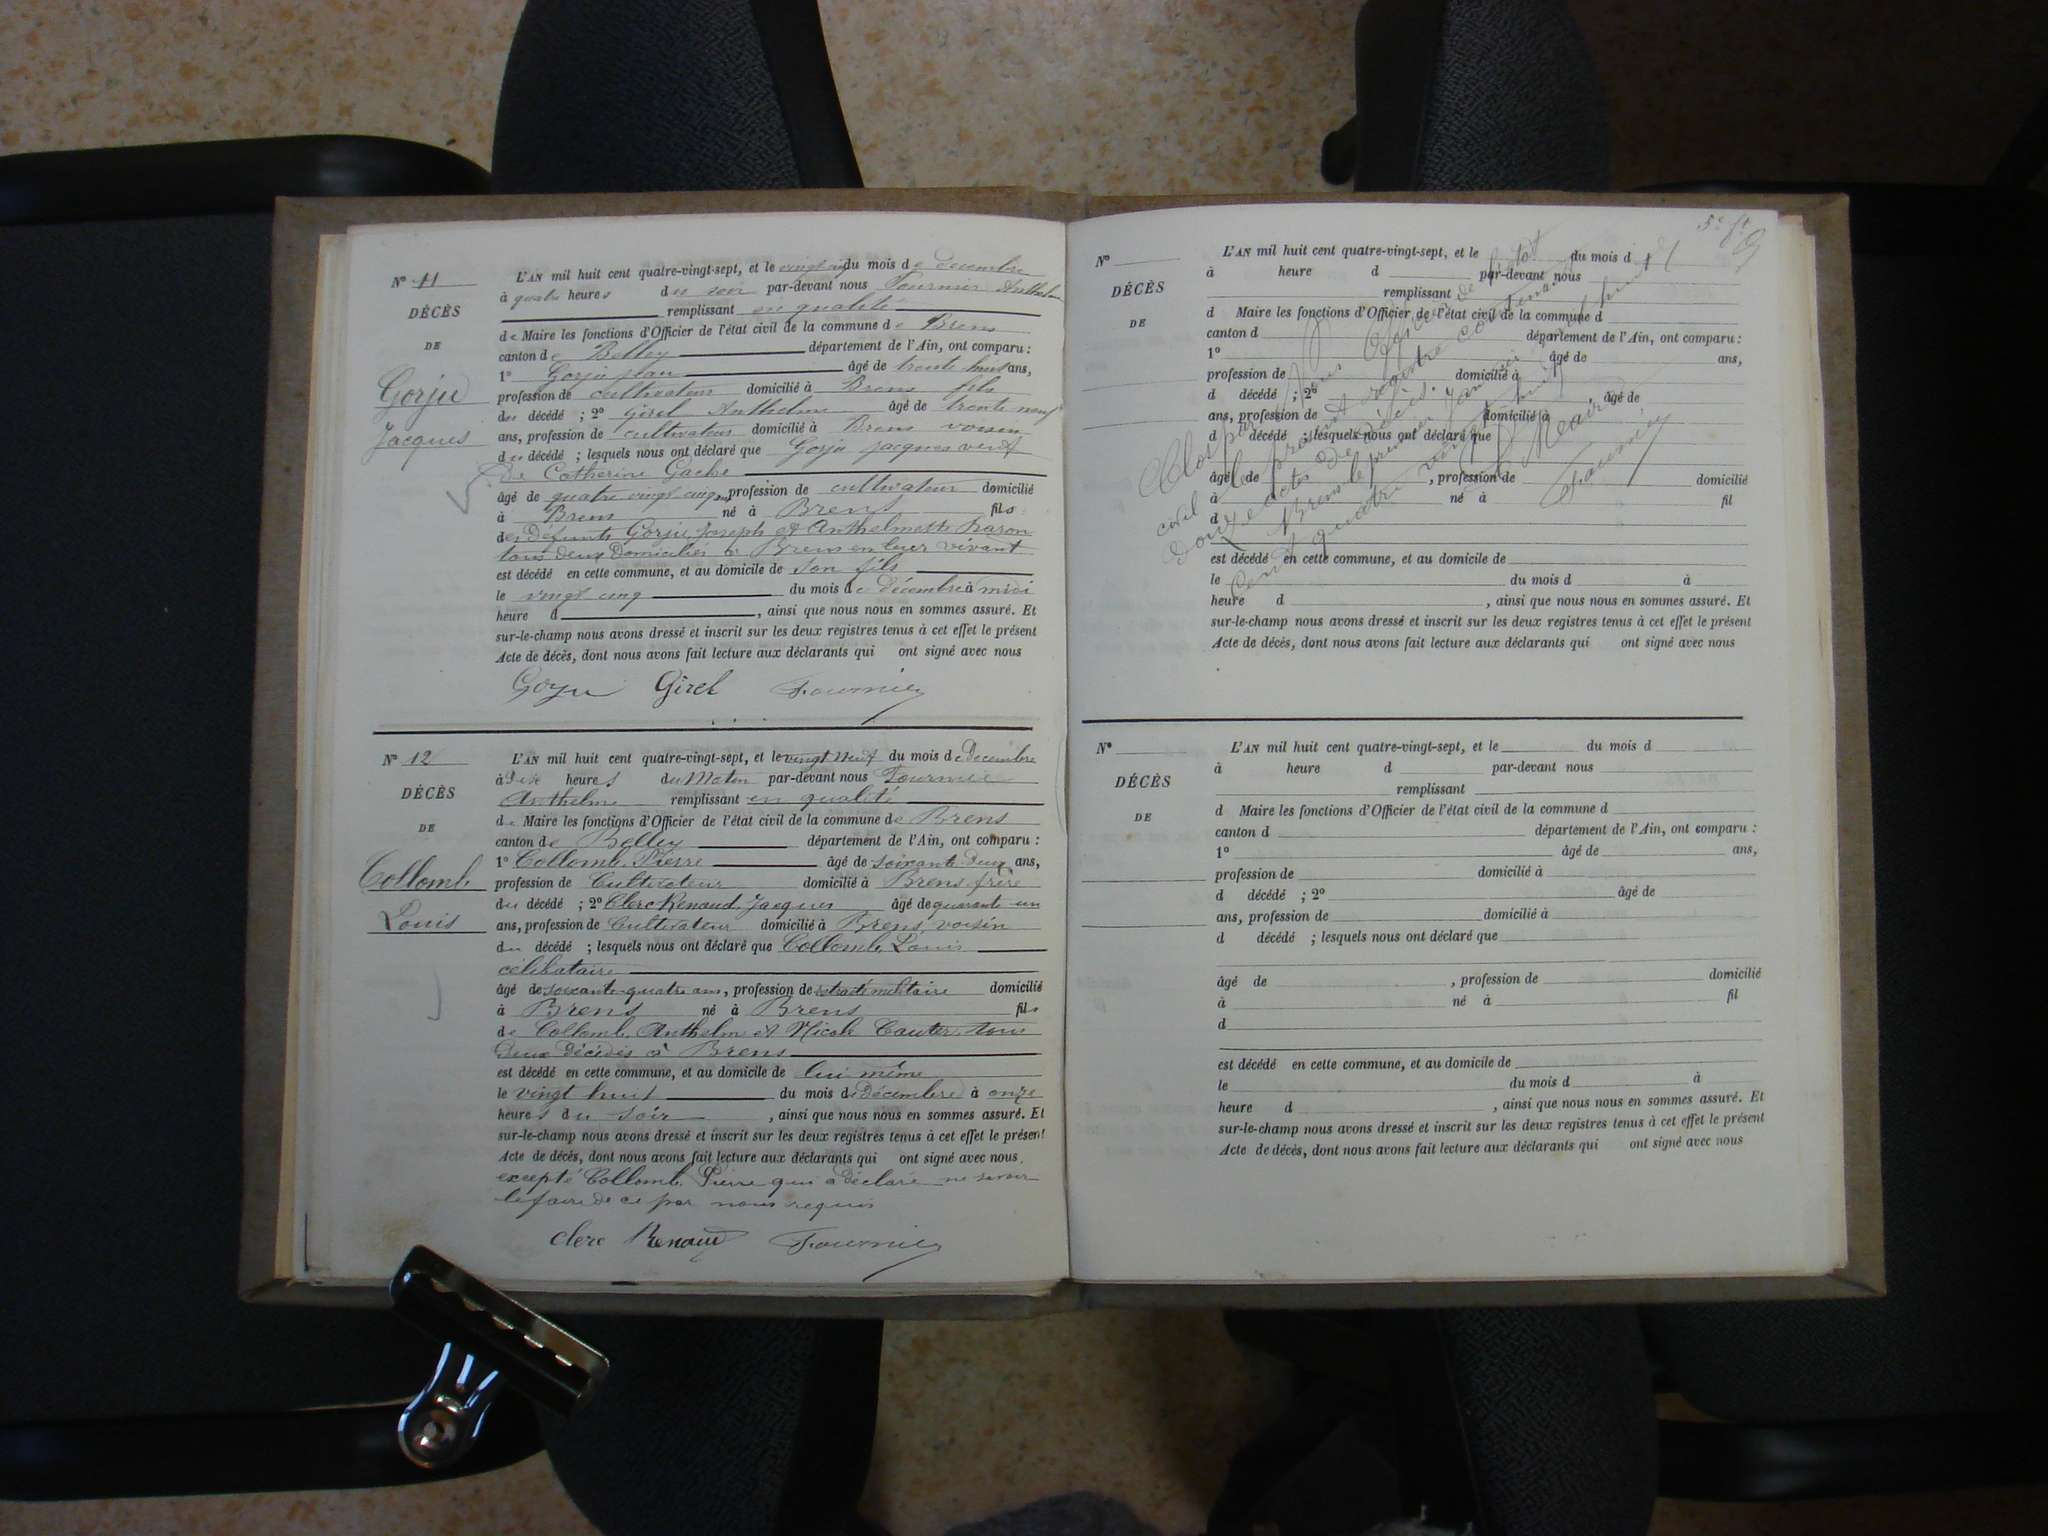 N° 11
DÉCÈS
DE
Gorju
Jacques
L'AN mil huit cent quatre-vingt-sept, et le vingt cinq du mois de decembre
à quatre heures du soir par-devant nous Fournier Anthelme
remplissant en qualité
de Maire les fonctions d'Officier de l'état civil de la commune de Brens
canton de Belley département de l'Ain, ont comparu :
1° Gorju Jean âgé de trente huit ans,
profession de cultivateur domicilié à Brens fils
du décédé ; 2° Girel Anthelme âgé de trente neuf
ans, profession de cultivateur domicilié à Brens voisin
du décédé ; lesquels nous ont déclaré que Gorju jacques veuf
de Catherine Gache
âgé de quatre vingt cinq ans, profession de cultivateur domicilié
à Brens né à Brens fils
des défunts Gorju Joseph et Anthelmette
tous deux Domiciliés à Brens en leur vivant
est décédé en cette commune, et au domicile de son fils
le vingt cinq du mois de décembre à midi
heure d , ainsi que nous nous en sommes assuré. Et
sur-le-champ nous avons dressé et inscrit sur les deux registres tenus à cet effet le présent
Acte de décès, dont nous avons fait lecture aux déclarants qui ont signé avec nous
Gorju Girel Fournier
N° 12
DÉCÈS
DE
Collomb
Louis
L'AN mil huit cent quatre-vingt-sept, et le vingt neuf du mois de Decembre
à Dix heures du Matin par-devant nous Fournier
Anthelme remplissant en qualité
de Maire les fonctions d'Officier de l'état civil de la commune de Brens
canton de Belley département de l'Ain, ont comparu :
1° Collomb Pierre âgé de soixante deux ans,
profession de Cultivateur domicilié à Brens frère
du décédé ; 2° Clerc Renaud Jacques âgé de quarante un
ans, profession de Cultivateur domicilié à Brens voisin
du décédé ; lesquels nous ont déclaré que Collomb Louis
célibataire
âgé de soixante quatre ans, profession de retraité militaire domicilié
à Brens né à Brens fils
de Collomb Anthelm et Nicole Cauter tous
deux décédés à Brens
est décédé en cette commune, et au domicile de lui même
le vingt huit du mois de Décembre à onze
heures du soir , ainsi que nous nous en sommes assuré. Et
sur-le-champ nous avons dressé et inscrit sur les deux registres tenus à cet effet le présent
Acte de décès, dont nous avons fait lecture aux déclarants qui ont signé avec nous
excepté Collomb Pierre qui a déclaré ne savoir
le faire de ce par nous requis
Clerc Renaud Fournier
N°
DÉCÈS
DE
L'AN mil huit cent quatre-vingt-sept, et le du mois d
à heure d par-devant nous
remplissant
d Maire les fonctions d'Officier de l'état civil de la commune d
canton d département de l'Ain, ont comparu :
1° âgé de ans,
profession de domicilié à
d décédé ; 2° âgé de
ans, profession de domicilié à
d décédé ; lesquels nous ont déclaré que
âgé de , profession de domicilié
à né à fil
d
est décédé en cette commune, et au domicile de
le du mois d à
heure d , ainsi que nous nous en sommes assuré. Et
sur-le-champ nous avons dressé et inscrit sur les deux registres tenus à cet effet le présent
Acte de décès, dont nous avons fait lecture aux déclarants qui ont signé avec nous
Clos par Nous Officier de l'état
civil le présent registre contenant
Douze actes de décès.
Brens le premier janvier mil huit
cent quatre vingt huit
Le Maire
Fournier
N°
DÉCÈS
DE
L'AN mil huit cent quatre-vingt-sept, et le du mois d
à heure d par-devant nous
remplissant
d Maire les fonctions d'Officier de l'état civil de la commune d
canton d département de l'Ain, ont comparu :
1° âgé de ans,
profession de domicilié à
d décédé ; 2° âgé de
ans, profession de domicilié à
d décédé ; lesquels nous ont déclaré que
âgé de , profession de domicilié
à né à fil
d
est décédé en cette commune, et au domicile de
le du mois d à
heure d , ainsi que nous nous en sommes assuré. Et
sur-le-champ nous avons dressé et inscrit sur les deux registres tenus à cet effet le présent
Acte de décès, dont nous avons fait lecture aux déclarants qui ont signé avec nous